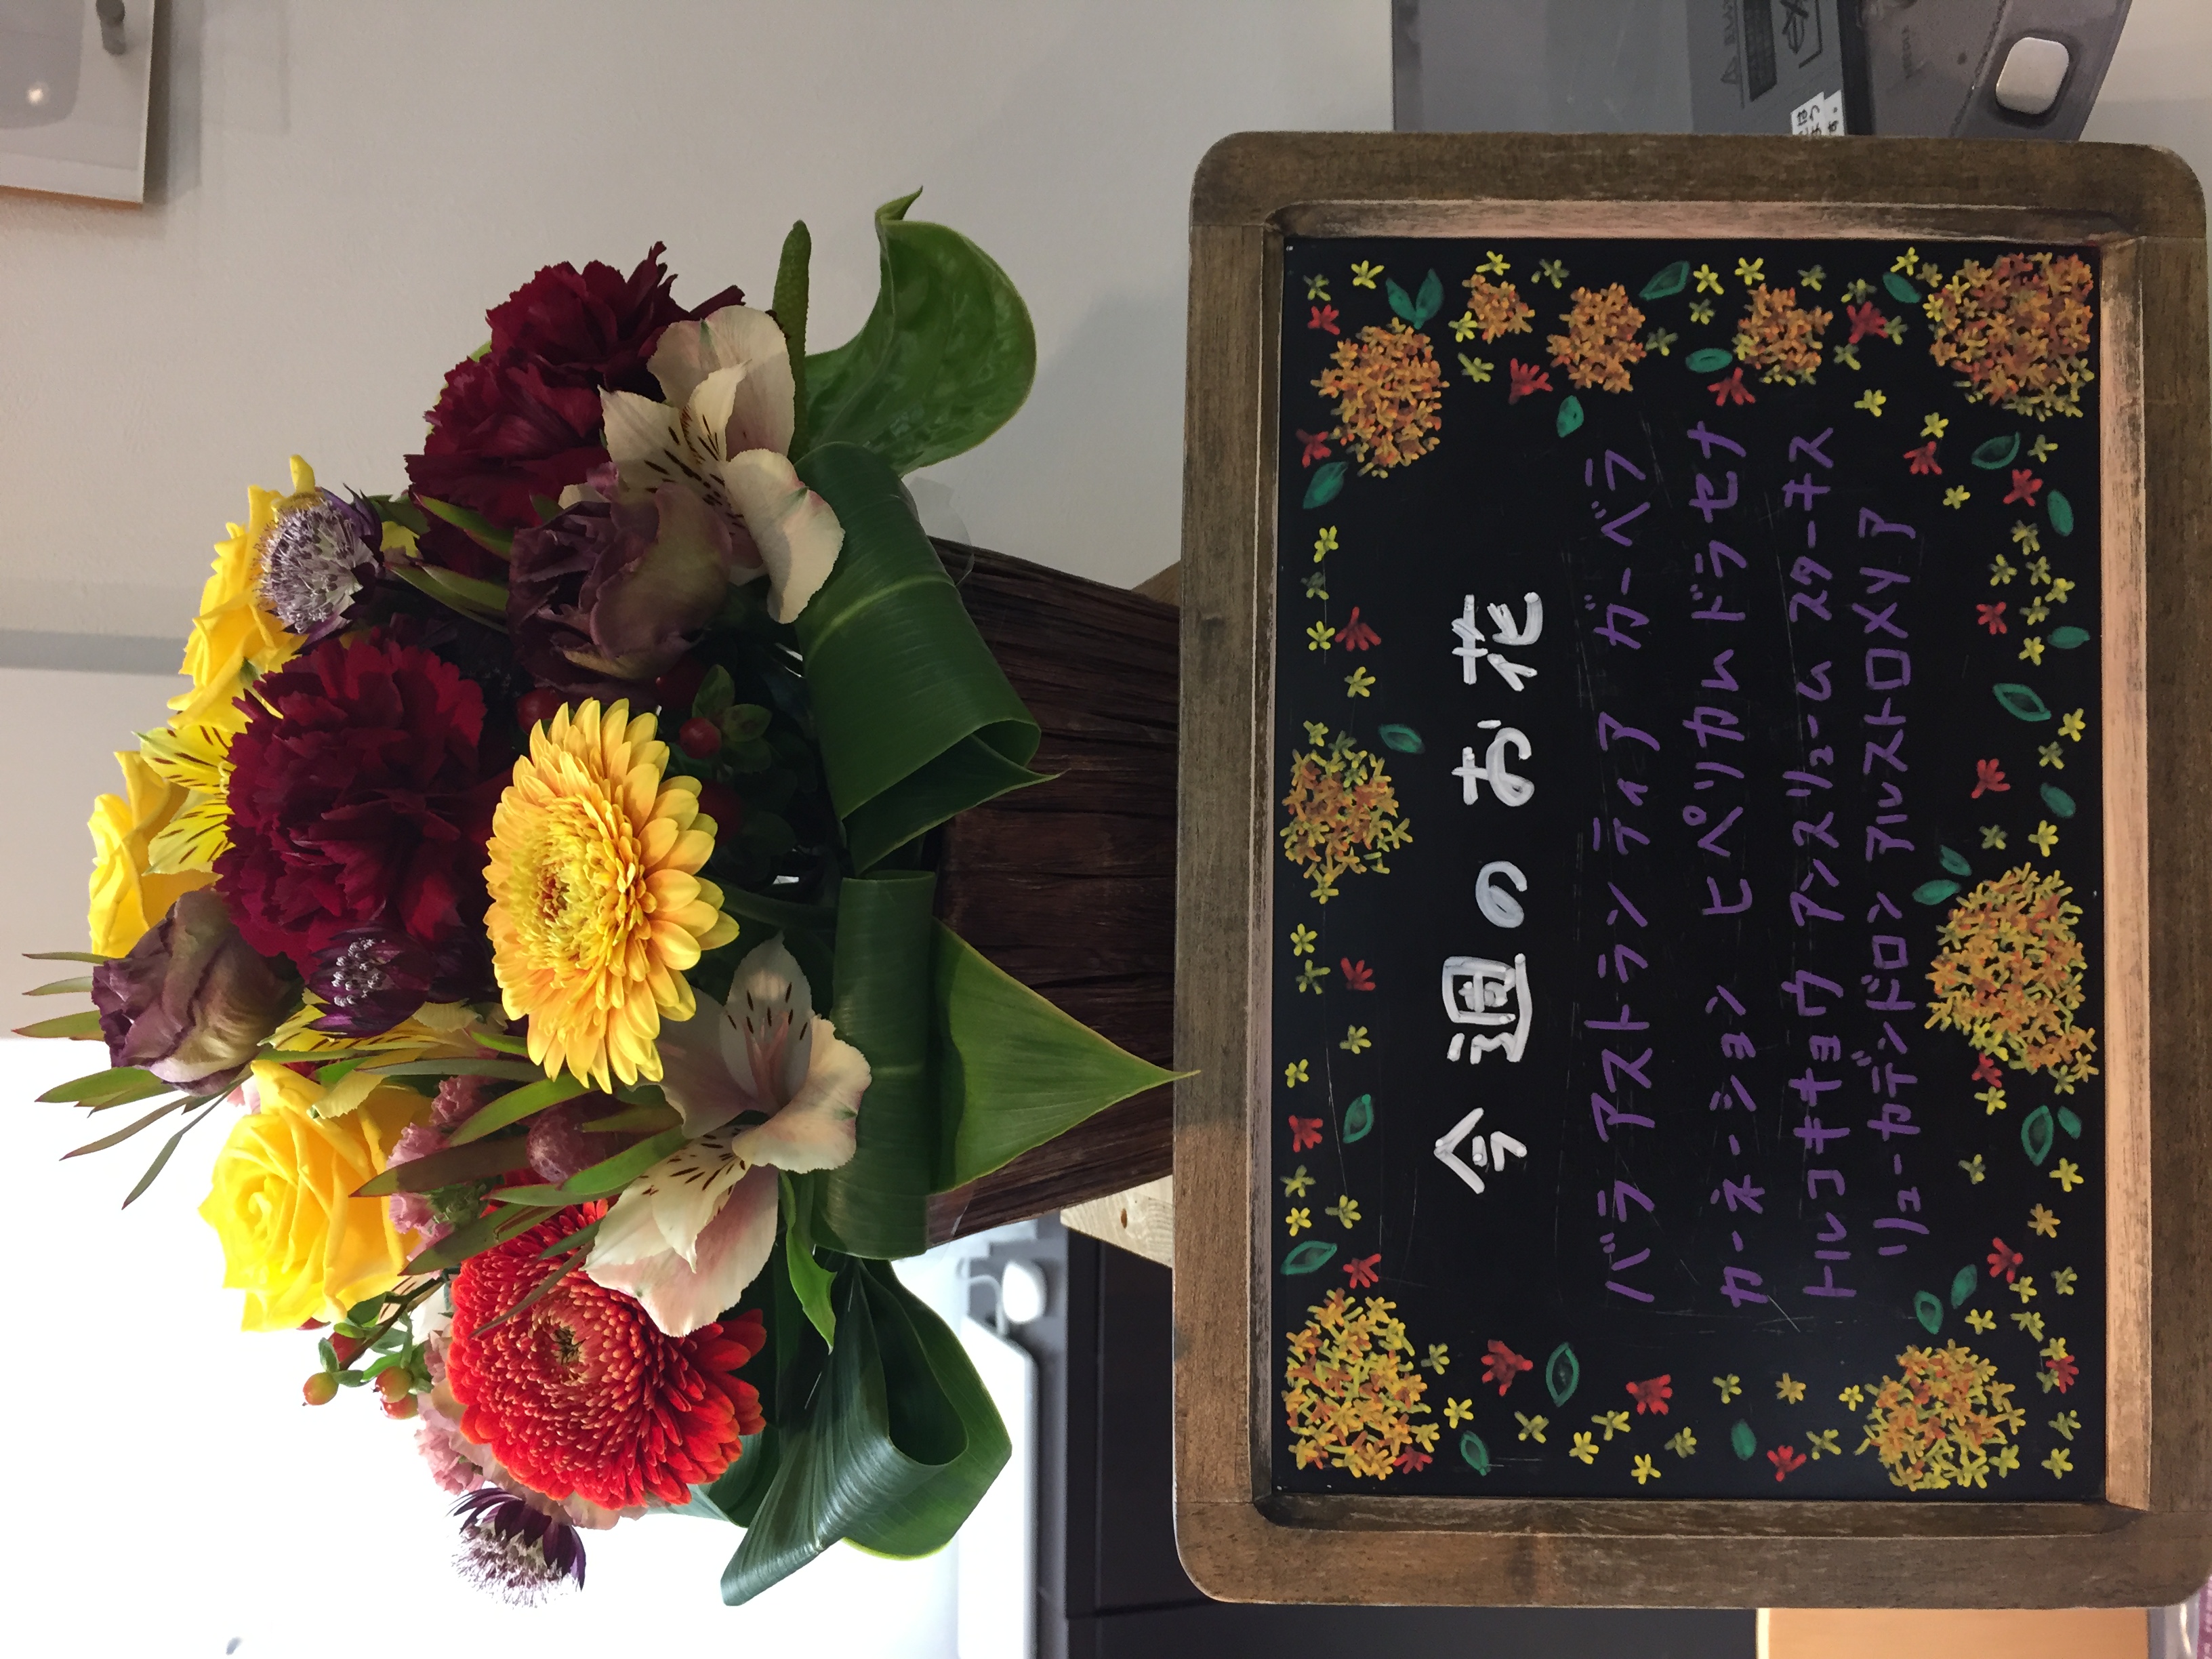 今週のお花
バラ アストランティア ガーベラ
カーネーション ヒペリカム ドラセナ
トルコキキョウ アンスリューム スターチス
リューカデンドロン アルストロメリア